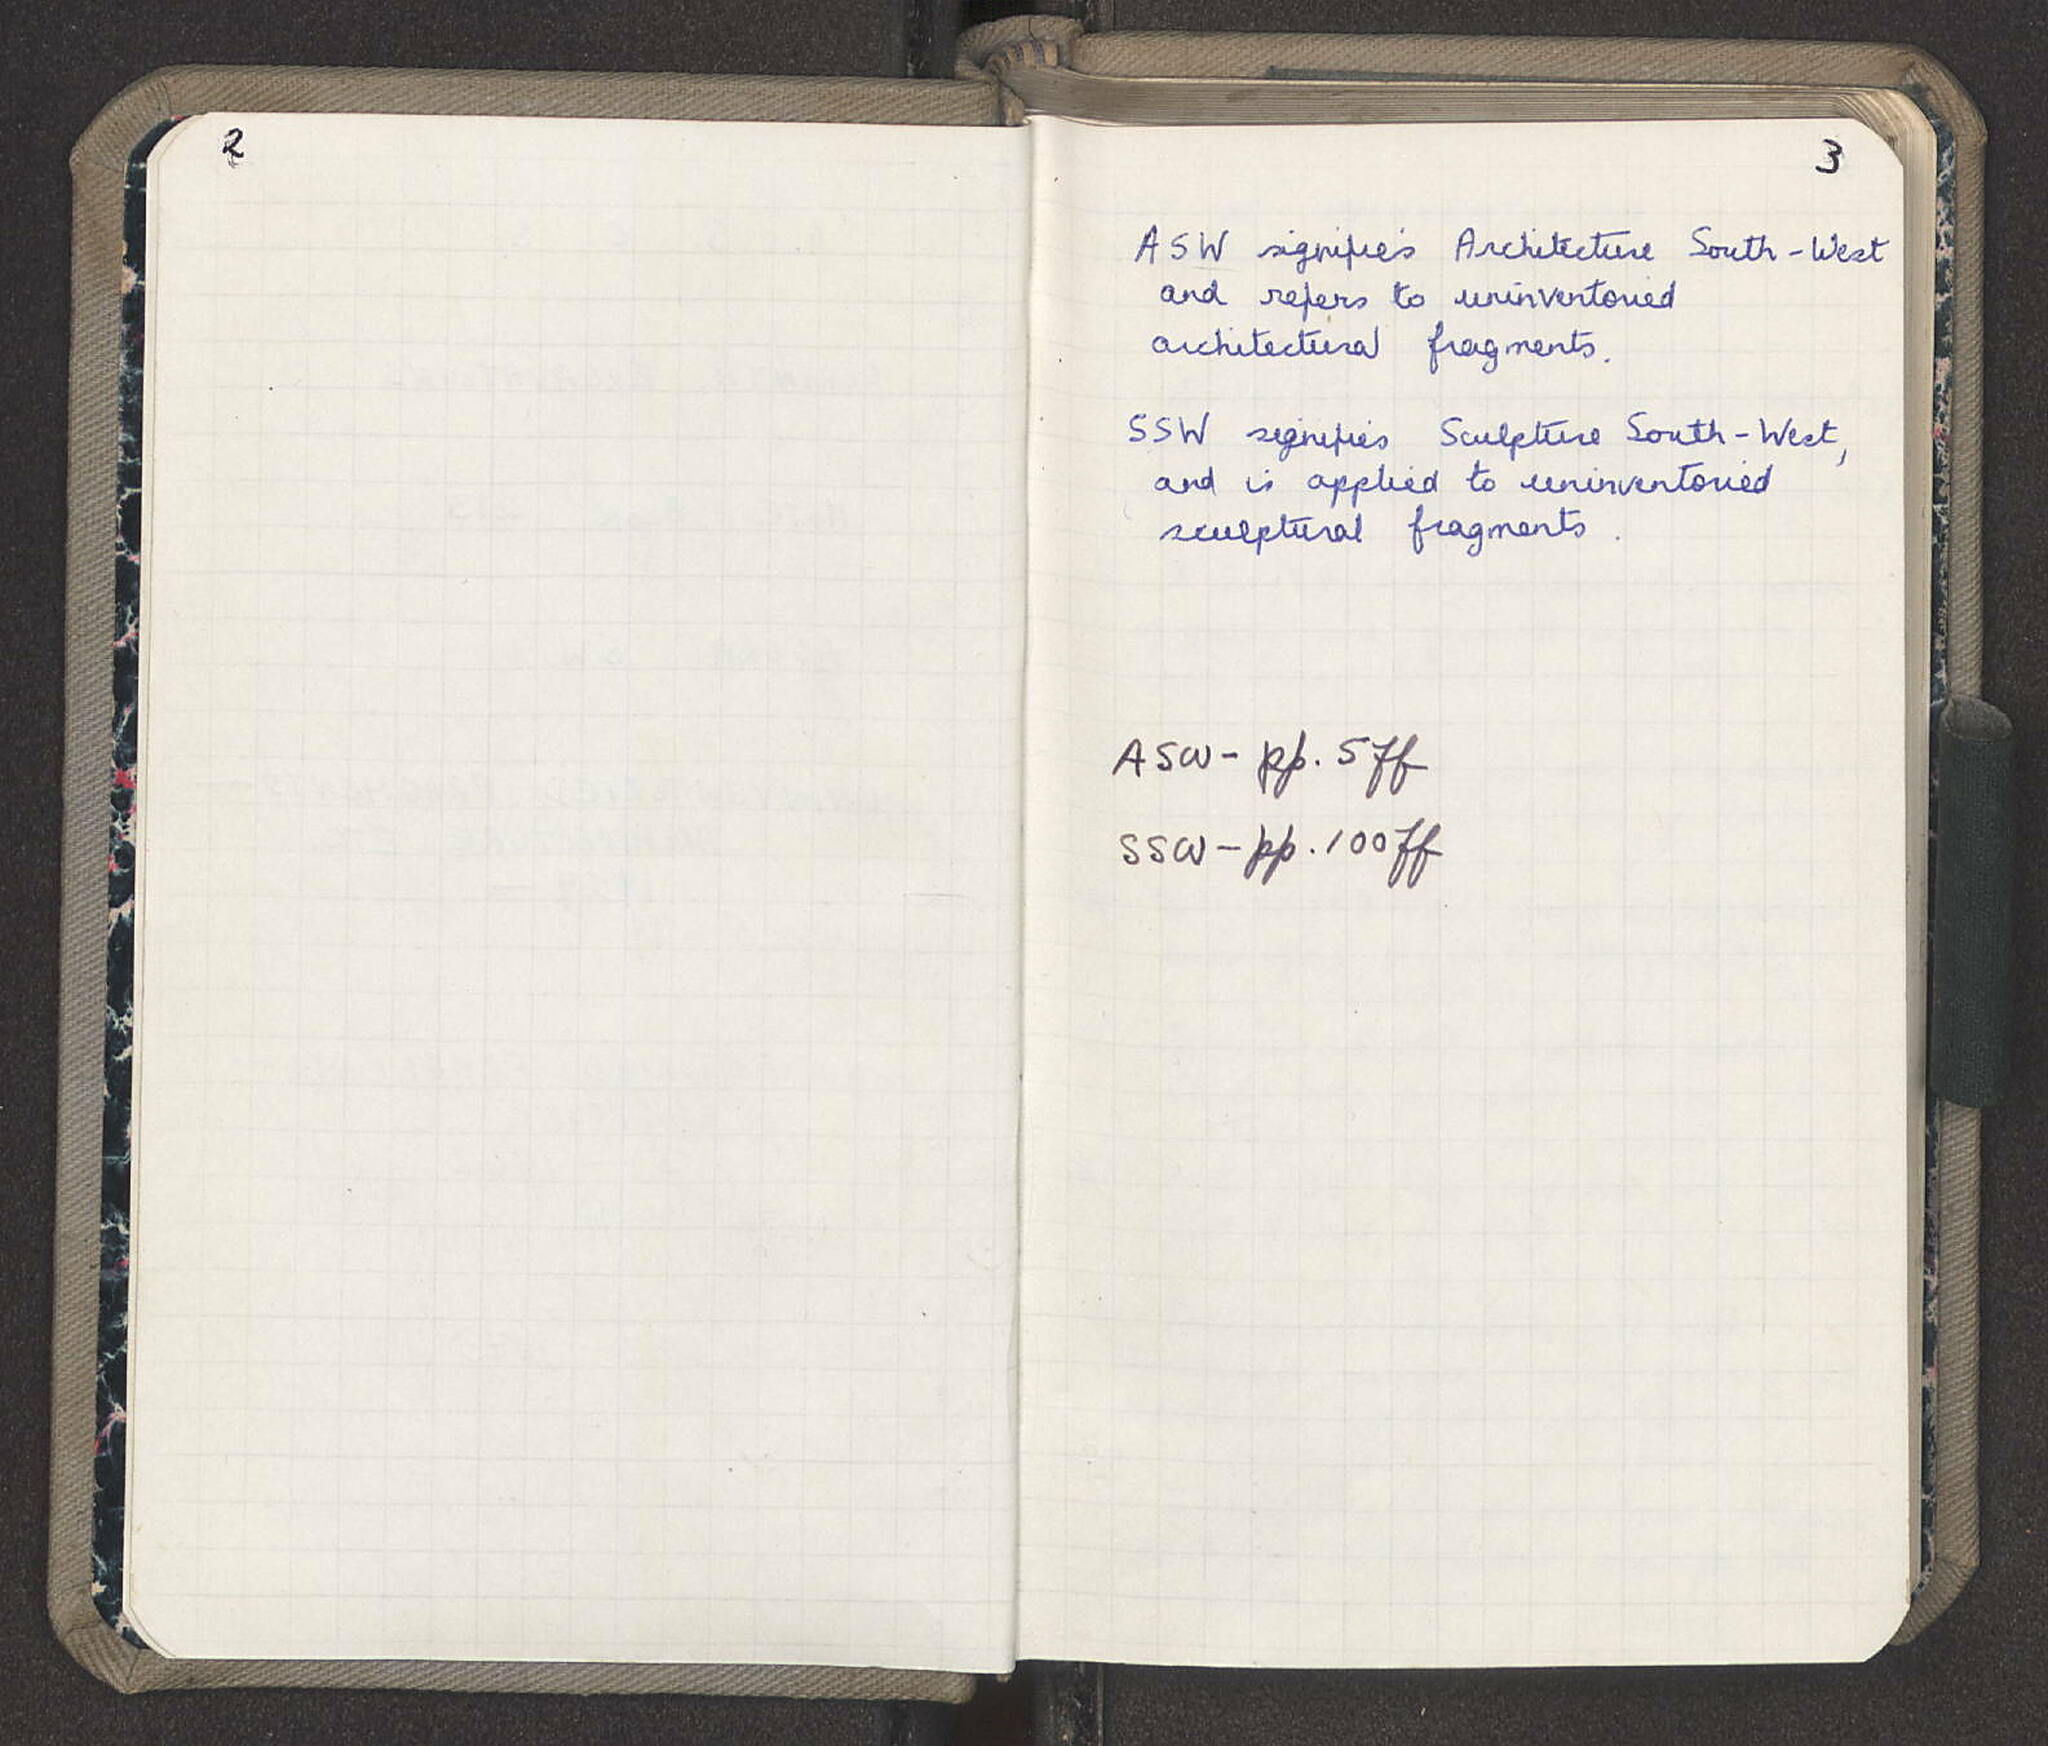 2
3
ASW signifies Architecture South-West
and refers to uninventoried
architectural fragments.
SSW signifies Sculpture South-West,
and is applied to uninventoried
sculptural fragments.
ASW - pp. 5 ff
SSW - pp. 100 ff